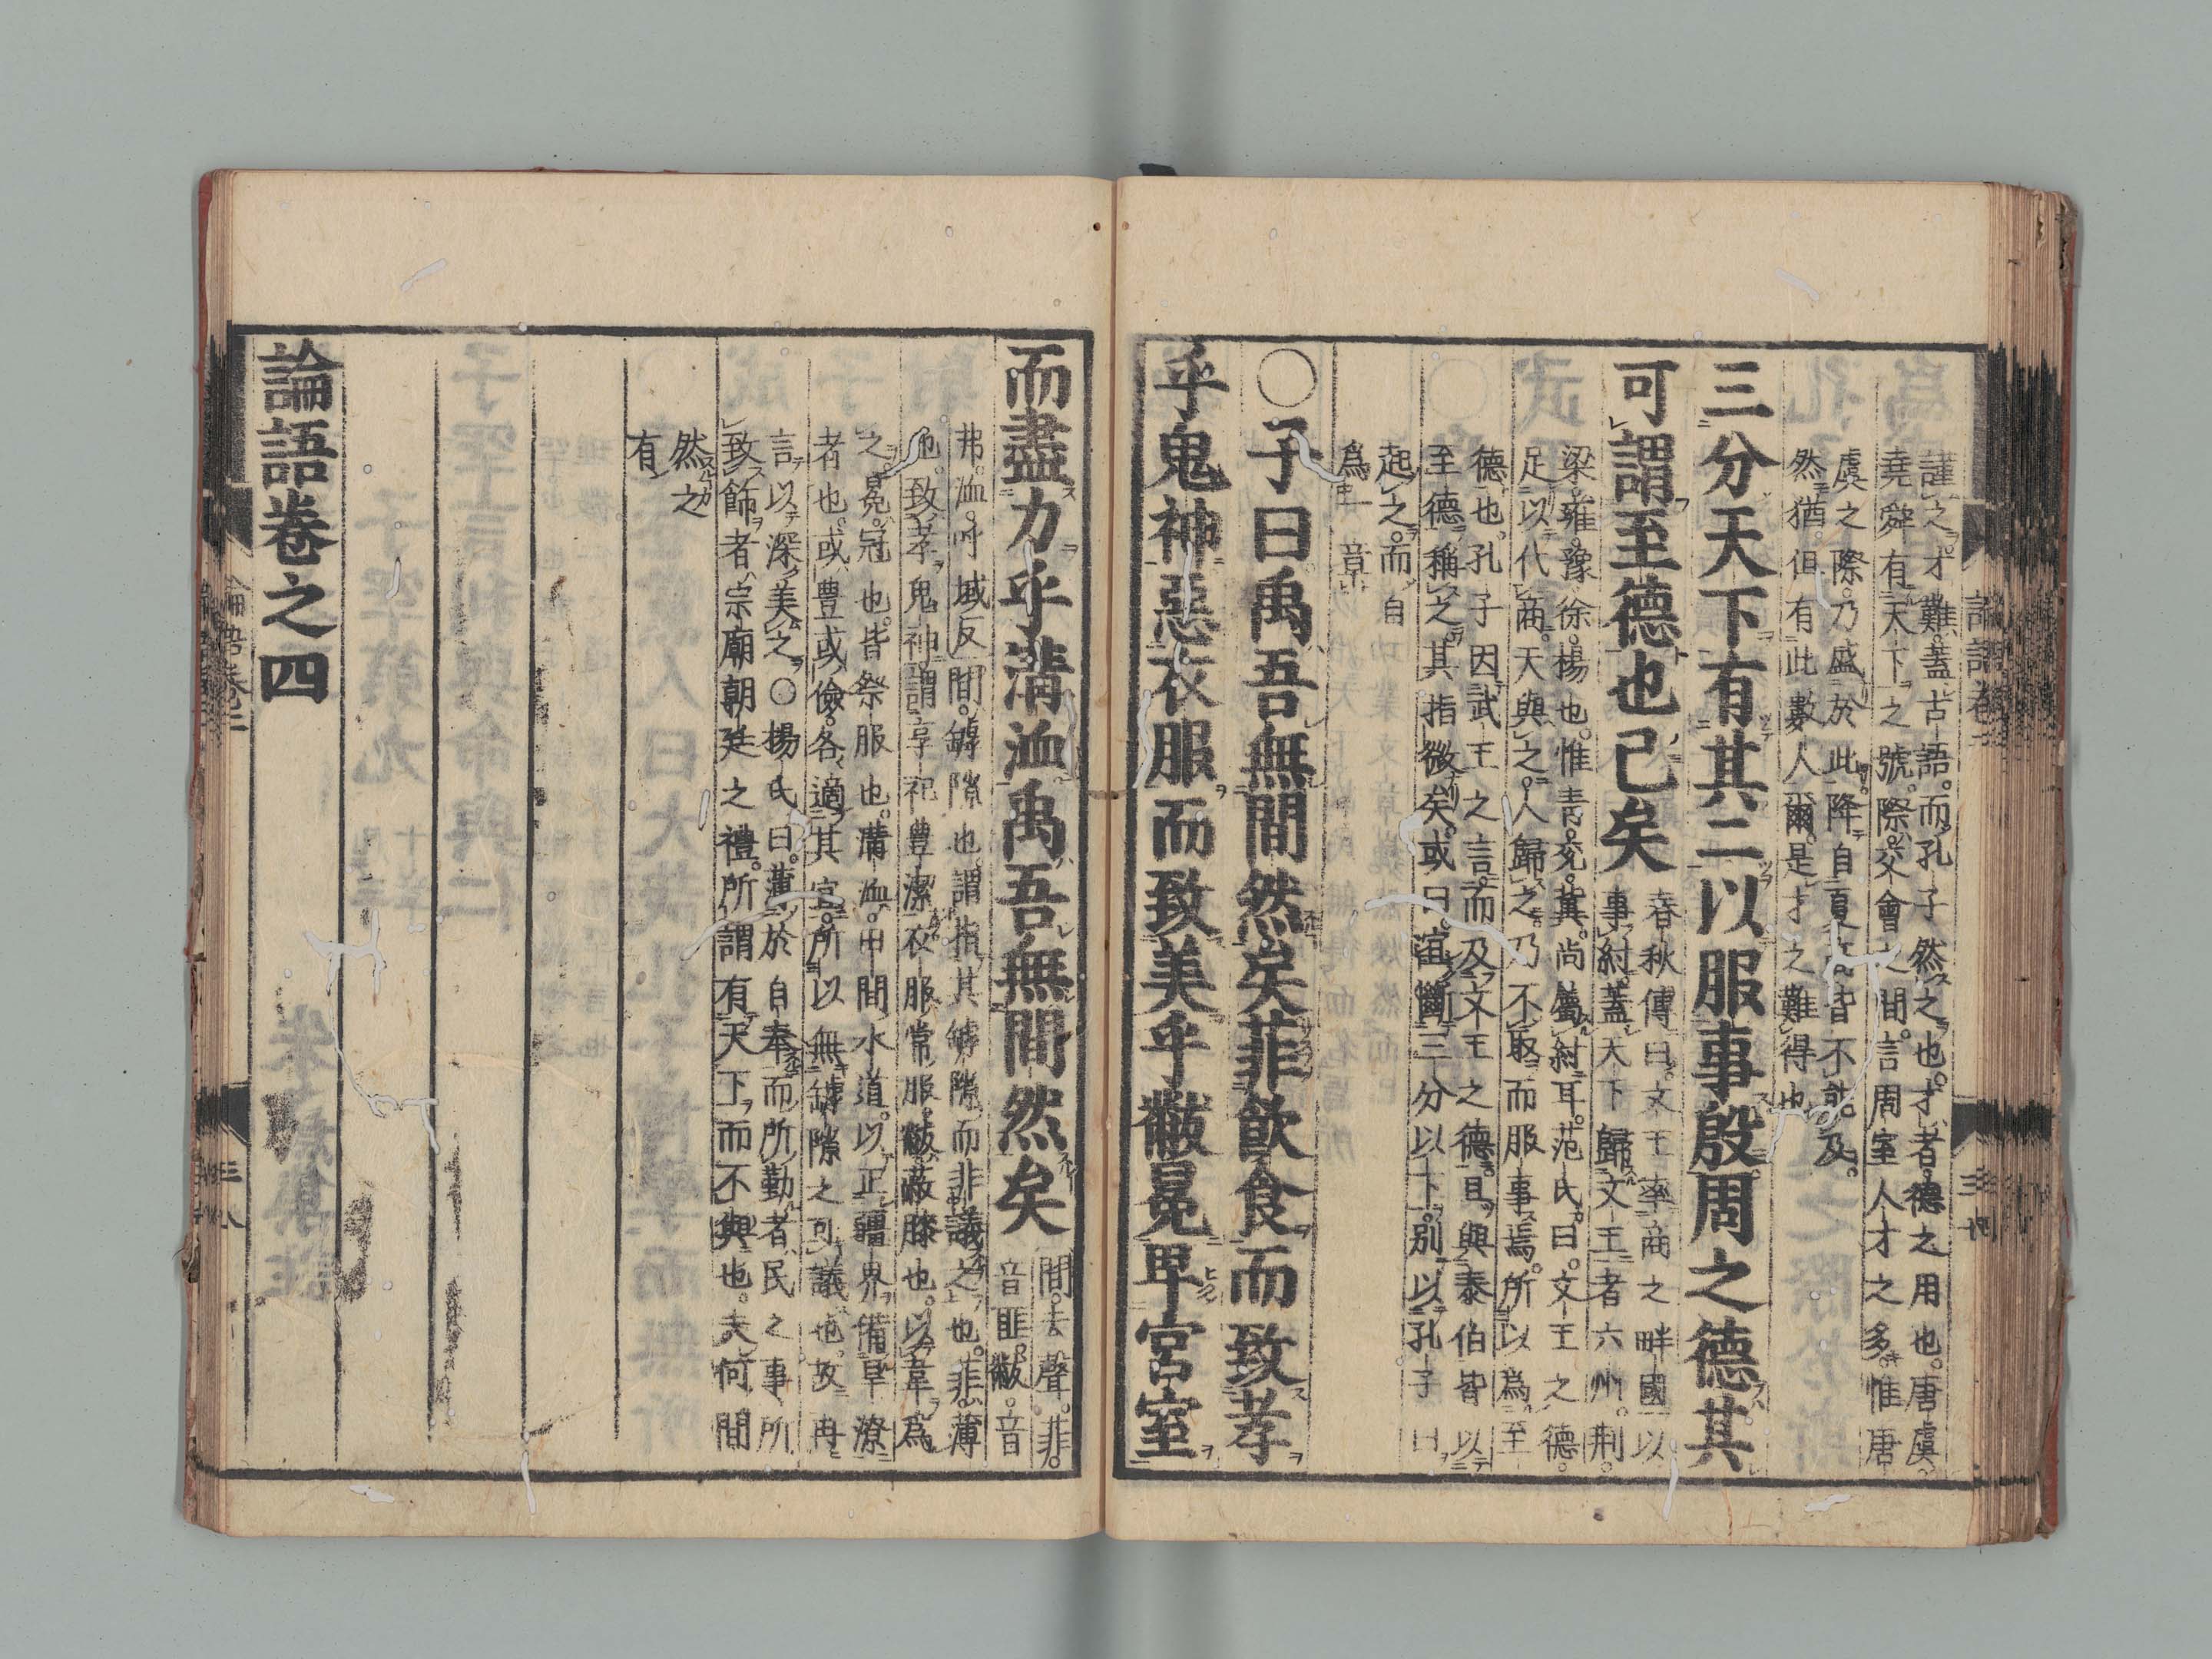 謹之才難蓋古語而孔子然之也才者德之用也唐虞
堯舜有天下之號際交會之間言周室人才之多惟唐
虞之際乃盛於此降自夏商皆不能及
然猶但有此數人爾是才之難得也
三分天下有其二以服事殷周之德其
可謂至德也已矣
春秋傳曰文王率商之畔國以
事紂蓋天下歸文王者六州荆
梁雍豫徐揚也惟青兗冀尚屬紂耳范氏曰文王之德
足以代商天與之人歸之乃不取而服事焉所以爲至
德也孔子因武王之言而及文王之德且與泰伯皆以
至德稱之其指微矣或曰宜斷三分以下別以孔子曰
起之而自
爲一章
○子曰禹吾無間然矣菲飮食而致孝
乎鬼神惡衣服而致美乎黻冕卑宮室
而盡力乎溝洫禹吾無間然矣
間去聲菲
音匪黻音
弗洫呼域反間罅隙也謂指其罅隙而非議之也菲薄
也致孝鬼神謂享祀豊潔衣服常服黻蔽膝也以韋爲
之冕冠也皆祭服也溝洫田間水道以正疆界備旱潦
者也或豊或儉各適其宜所以無罅隙之可議也故再
言以深美之○楊氏曰薄於自奉而所勤者民之事所
致飾者宗廟朝廷之禮所謂有天下而不與也夫何間
然之
有
論語卷之四